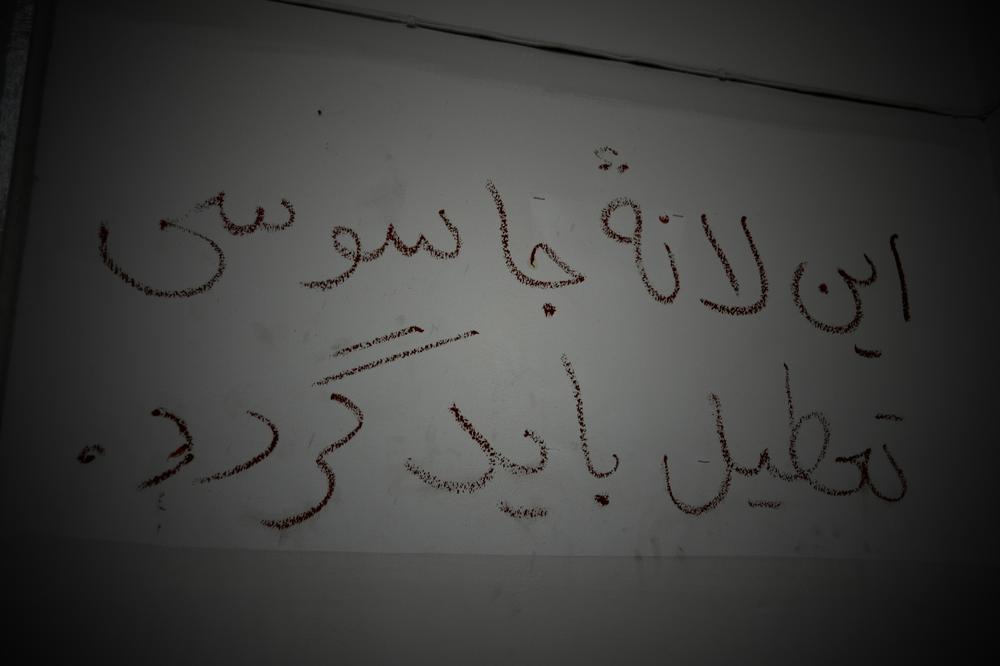 این لانهٔ جاسوسی
تعطیل باید گردد.